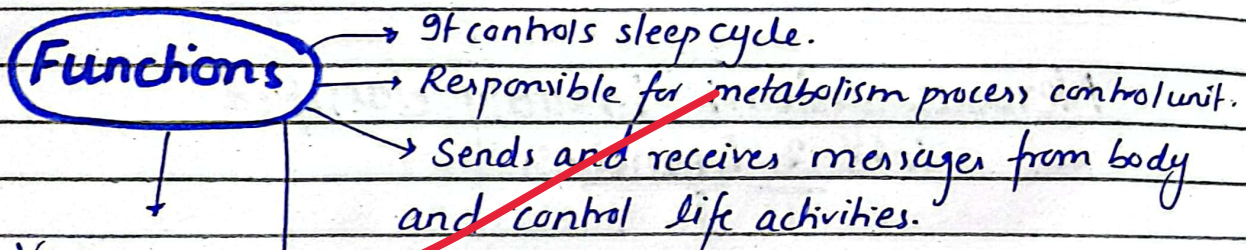 Functions
It controls sleep cycle.
Responsible for metabolism process control unit.
Sends and receives messages from body
and control life activities.